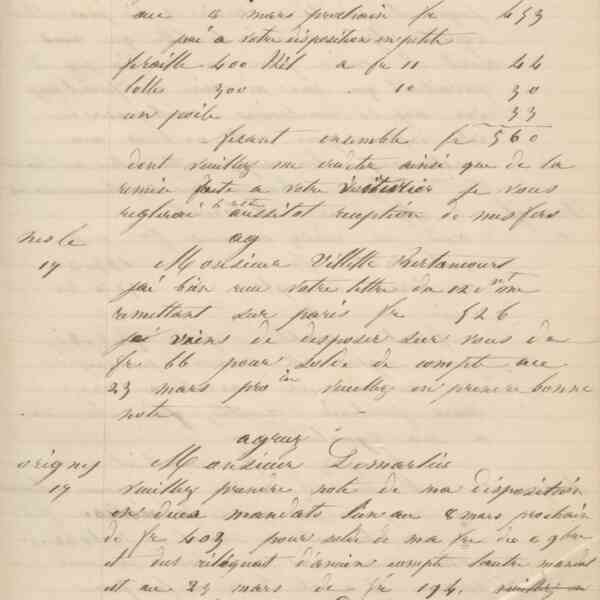 au 8 mars prochain fr 453
j'ai a votre disposition en petite
feraille 400 Kil a fr 11 44
tolles 300 . 10 30
un poële 33
fesant ensemble fr 560
dont veuillez me créditer ainsi que de la
remise faite a votre je vous
reglerai le reste aussitot reception de mes fers
ag
nesle
17 Monsieur Villette Bertancourt
j'ai bien recu votre lettre du 12 me
remettant sur paris fr 526
je viens de disposer sur vous de
fr 66 pour solde de compte au
23 mars pro in veuillez en prendre bonne
note
agreez
origny Monsieur Demartin
17 veuillez prendre note de ma disposition
en deux mandats l'un au 8 mars prochain
de fr 403 pour solde de ma fre du 9bre
et du reliquat d'ancien compte l'autre mandat
est au 23 mars de fr 194. veuillez